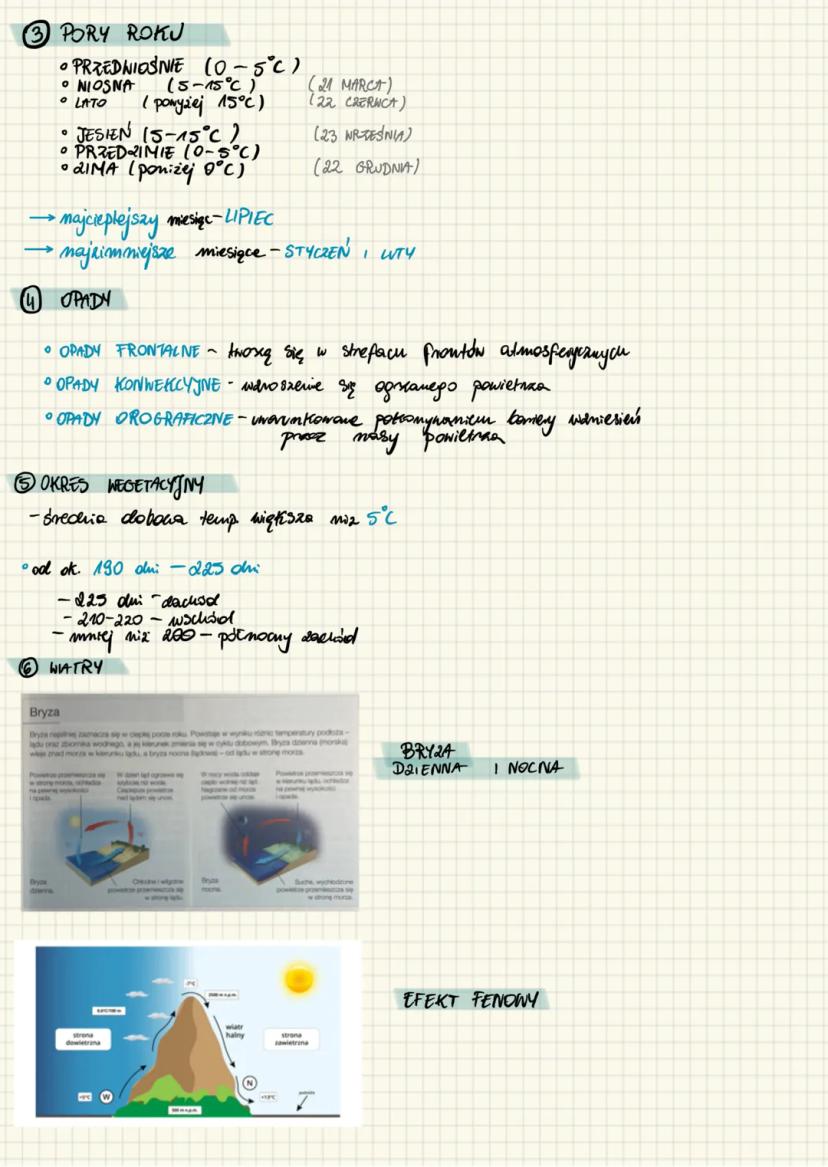 ③ PORY ROKU
• PRZEDWIOŚNIE (0 – 5°C)
• WIOSNA (5–15°C) (21 MARCA)
• LATO (powyżej 15°C) (22 CZERWCA)
• JESIEŃ (5–15°C) (23 WRZEŚNIA)
• PRZEDZIMIE (0–5°C)
• ZIMA (poniżej 0°C) (22 GRUDNIA)
→ najcieplejszy miesiąc – LIPIEC
→ najzimniejsze miesiące – STYCZEŃ I LUTY
④ OPADY
• OPADY FRONTALNE – tworzą się w strefach frontów atmosferycznych
• OPADY KONWEKCYJNE - wznoszenie się ogrzanego powietrza
• OPADY OROGRAFICZNE – uwarunkowane pokonywaniem bariery wzniesień
przez masy powietrza
⑤ OKRES WEGETACYJNY
– średnia dobowa temp większa niż 5°C
• od ok. 190 dni – 225 dni
– 225 dni – zachód
– 210–220 – wschód
– mniej niż 200 – północny zachód
⑥ WIATRY
Bryza
Bryza najsilniej zaznacza się w ciepłej porze roku. Powstaje w wyniku różnic temperatury podłoża –
lądu oraz zbiornika wodnego, a jej kierunek zmienia się w cyklu dobowym. Bryza dzienna (morska)
wieje znad morza w kierunku lądu, a bryza nocna (lądowa) – od lądu w stronę morza.
Powietrze przemieszcza się
w stronę morza, ochładza
na pewnej wysokości
i opada.
W dzień ląd ogrzewa się
szybciej niż woda.
Cieplejsze powietrze
nad lądem się unosi.
W nocy woda oddaje
ciepło wolniej niż ląd.
Nagrzane od morza
powietrze się unosi.
Powietrze przemieszcza się
w kierunku lądu, ochładza
na pewnej wysokości
i opada.
Bryza
dzienna.
Chłodne i wilgotne
powietrze przemieszcza się
w stronę lądu.
Bryza
nocna.
Suche, wychłodzone
powietrze przemieszcza się
w stronę morza.
BRYZA
DZIENNA I NOCNA
EFEKT FENOWY
-7°C
2500 m n.p.m.
0,6°C/100 m
strona
dowietrzna
wiatr
halny
strona
zawietrzna
+5°C
W
N
+13°C
500 m n.p.m.